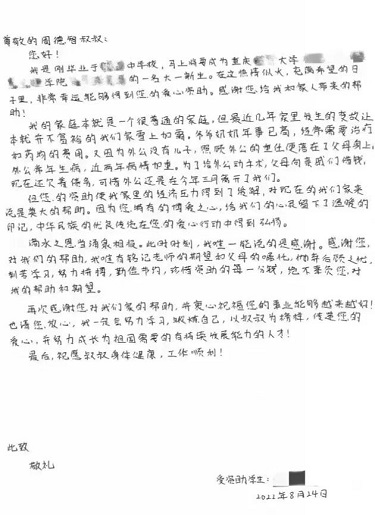 尊敬的周德智叔叔：
您好！
我是刚毕业于中学校，马上将要成为重庆大学
学院的一名大一新生。在这热情似火、充满希望的日
子里，非常幸运能够得到您的爱心资助。感谢您给我和家人带来的帮
助！
我的家庭本就是一个很普通的家庭，但最近几年家里发生的变故让
本就并不富裕的我们家雪上加霜。爷爷奶奶年事已高，还常需要治疗
和药物的费用。又因为外公没有儿子，照顾外公的重任便落在了父母身上，
外公常年生病，近两年病情加重。为了给外公动手术，父母向亲戚们借钱，
现在还欠着债务，可惜外公还是在今年三月离开了我们。
但您的资助使我家里的经济压力得到了缓解，对现在的我们家来
说是莫大的帮助。因为您拥有的博爱之心，给我们的心灵留下了温暖的
印记，中华民族的优良传统在您的爱心行动中得到弘扬。
滴水之恩当涌泉相报。此时此刻，我唯一能说的是感谢。感谢您
对我们的帮助，我唯有铭记老师的期望和父母的嘱托，
刻苦学习，努力拼搏，勤俭节约，珍惜资助的每一分钱，绝不辜负您对
我的帮助和期望。
再次感谢您对我们家的帮助，并衷心祝福您的事业能够越来越好！
也请您放心，我一定会努力学习，锻炼自己，以叔叔为榜样，传递您的
爱心，并努力成长为祖国需要的有持续发展能力的人才！
最后，祝愿叔叔身体健康，工作顺利！
此致
敬礼
受资助学生：
2022年8月24日